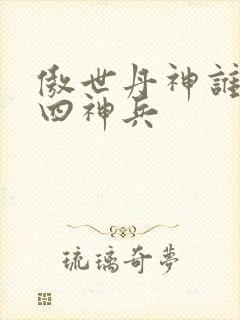 傲世丹神誰
四神兵
琉璃奇夢